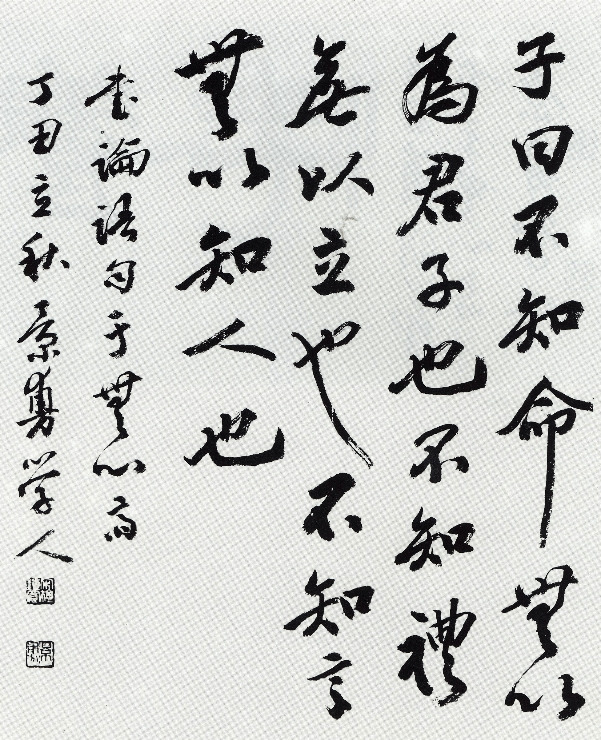 子曰不知命無以
為君子也不知禮
無以立也不知言
無以知人也
书論語句于無心斋
丁丑立秋景学人